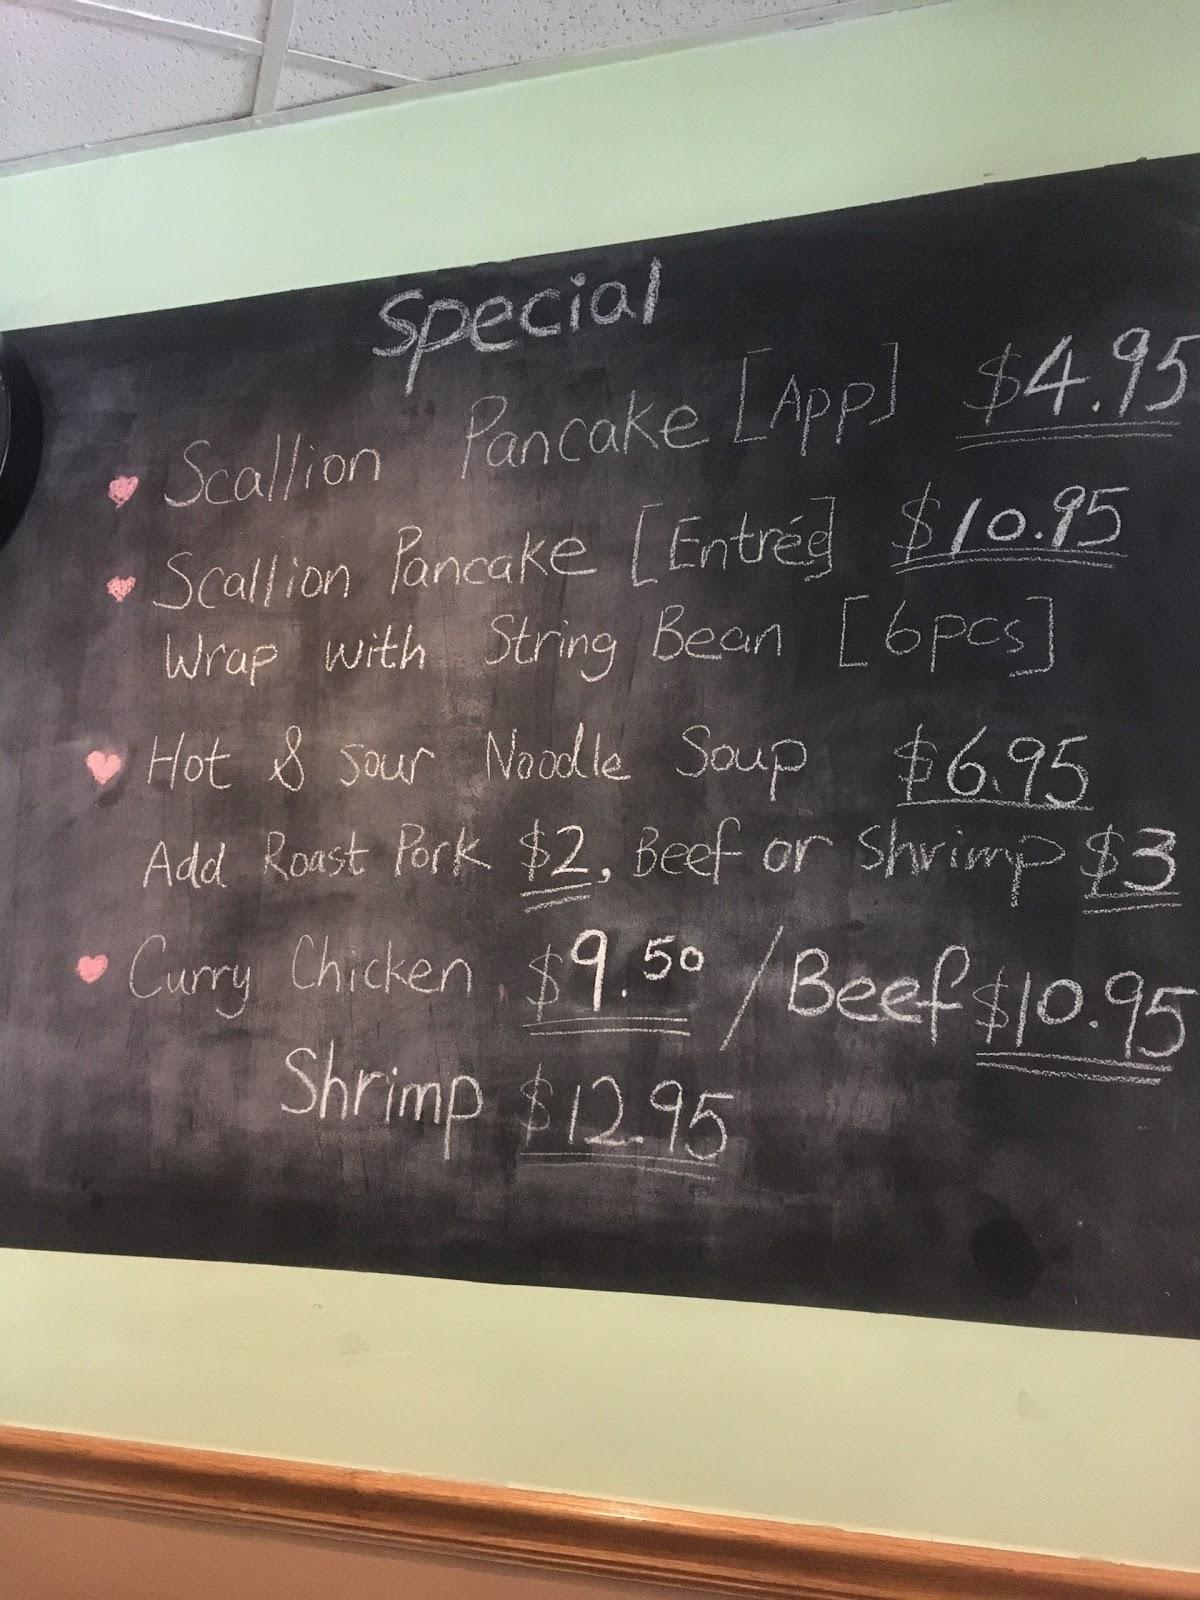 Special
Scallion Pancake [App] $4.95
Scallion Pancake [Entrée] $10.95
Wrap with String Bean [6pcs]
Hot & Sour Noodle Soup $6.95
Add Roast Pork $2, Beef or Shrimp $3
Curry Chicken $9.50 / Beef $10.95
Shrimp $12.95